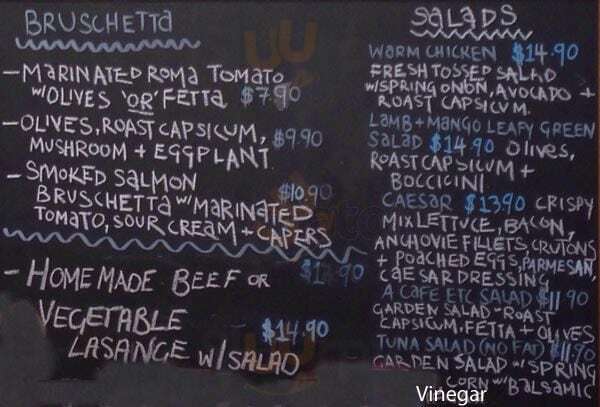 BRUSCHETTA
- MARINATED ROMA TOMATO
W/OLIVES 'OR' FETTA $7.90
- OLIVES, ROAST CAPSICUM,
MUSHROOM + EGGPLANT $9.90
- SMOKED SALMON
BRUSCHETTA W/ MARINATED $10.90
TOMATO, SOUR CREAM + CAPERS
- HOME MADE BEEF OR
VEGETABLE
LASANGE W/ SALAD $14.90
SALADS
WARM CHICKEN $14.90
FRESH TOSSED SALAD
W/SPRING ONON, AVOCADO +
ROAST CAPSICUM.
LAMB + MANGO LEAFY GREEN
SALAD $14.90 OLIVES,
ROAST CAPSICUM +
BOCCICINI
CAESAR $13.90 CRISPY
MIX LETTUCE, BACON,
ANCHOVIE FILLETS, CRUTONS
+ POACHED EGGS, PARMESAN,
CAESAR DRESSING
A CAFE ETC SALAD $11.90
GARDEN SALAD - ROAST
CAPSICUM, FETTA + OLIVES
TUNA SALAD (NO FAT) $11.90
GARDEN SALAD W/ SPRING
CORN W/ BALSAMIC
Vinegar